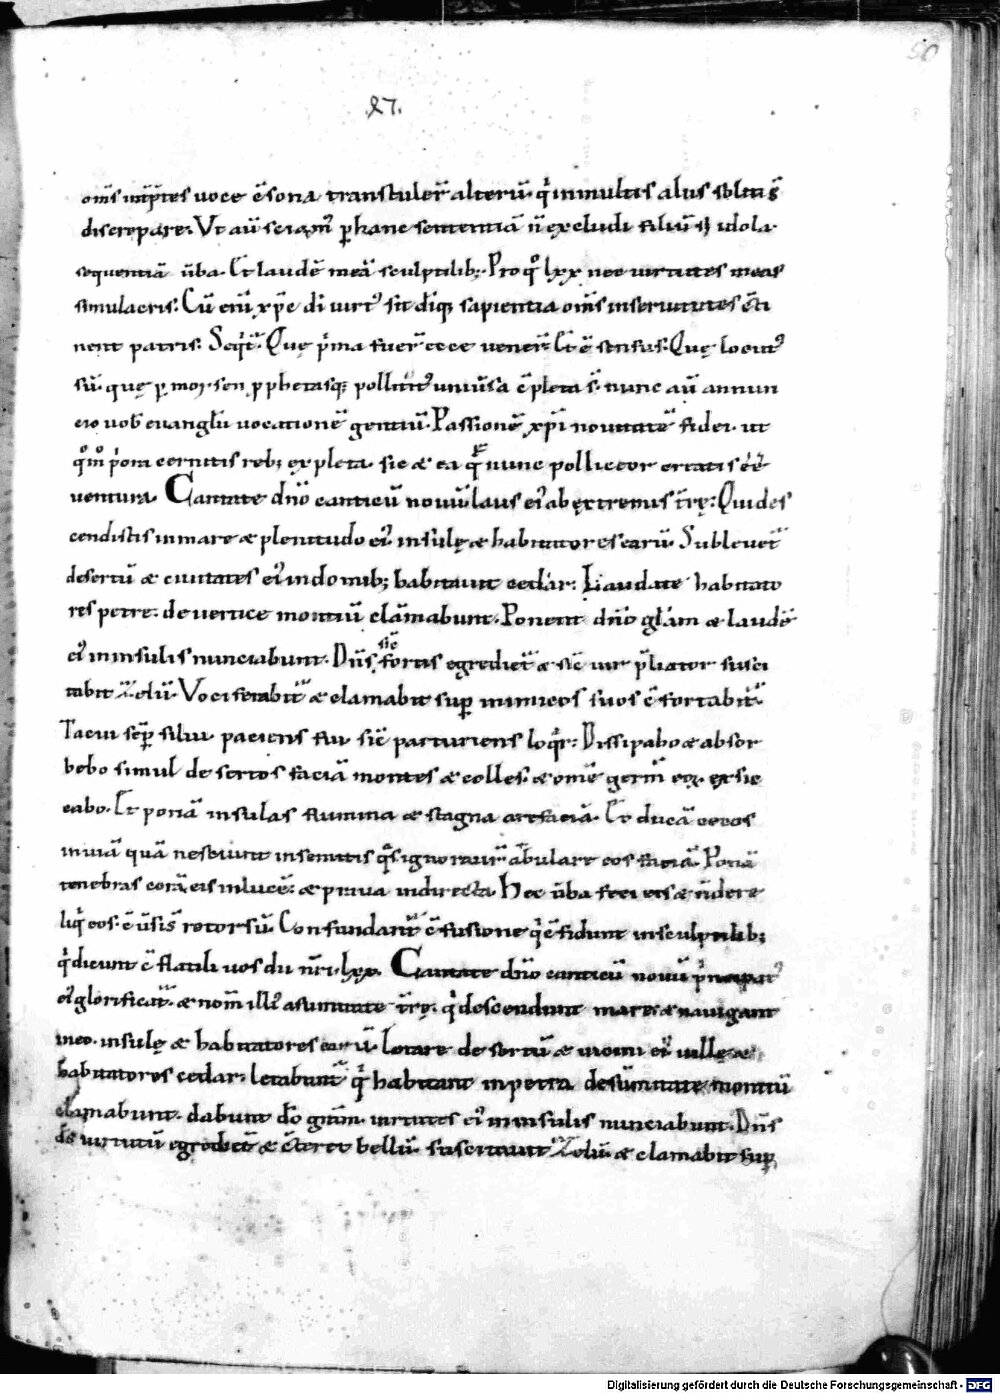 90
XI.
om̄s int̄p̄tes voce c̄sona transtuler̄ alterū. q̇ in multis aliis solitus
discrepare. Ut aū sciam̄ p hanc sententiā n̄ excludi filiū sꝫ idola.
sequentiā ūba. Et laudē meā sculptilibꝫ. Pro q̊ lxx nec virtutes meas
simulacris. Cū eni xp̄c di virt sit deiq; sapientia om̄s in se virtutes c̄ti
nent patris. Seq̇t. Quę ṗma fuer̄ ecce vener̄. Et ē sensus. Quę locut
sū. quę p moysen p phetasq; pollicit univsa c̄pleta s̄. nunc aū annun
cio vob evangl̄ii vocationē gentiū. Passionē xp̄i novitatē fidei. ut
q̊m̊ ṗora cernitis rebꝫ expleta. sic & ea q̄ nunc polliceor credatis ēē
ventura. Cantate dn̄o canticū novū laus ei ab extremis t̄rę. Qui des
cenditis in mare & plenitudo ei insulę & habitatores earū. Sublevet
desertū & civitates ei in domibꝫ habitavit cedar. Laudate habitato
res petre. de vertice montiū clāmabunt. Ponent dn̄o gl̄am & laudē
ei in insulis nunciabunt. Dn̄s sic fortis egrediet & sic vir p̄liator susci
tabit zelū. Vociferabit & clamabit sup inimicos suos c̄fortabit.
Tacui semp silui paciens fui sic parturiens loq̇r. Dissipabo & absor
bebo simul desertos faciā montes & colles. & om̄e germ̄ eoꝝ. exsic
cabo. Et ponā insulas flumina & stagna arefaciā. Et ducā cecos
in viā quā nesciunt in semitis q̄s ignoraver̄ ābulare eos faciā. Ponā
tenebras corā eis in lucē. & prava in directa. Hec ūba feci eis & n̄ dere
liq̇ eos. c̄v̄si s̄ retorsū. Confundant c̄fusione q̇ c̄fidunt in sculptilibꝫ
q̇ dicunt c̄flatili vos dii n̄ri. lxx. Cantate dn̄o canticū novū ṗncipat
ei glorificat. & nom̄ illi a summitate t̄rę. q̇ descendunt mare & navigant
in eo. insulę & habitatores earū. Letare desertū & vicini ei villę &
habitatores cedar. letabunt q̇ habitant in petra de sūmitate montiū
clamabunt. dabunt do glām. virtutes ei in insulis nunciabunt. Dn̄s
ds̄ virtutū egrediet & c̄teret bellū. suscitavit zelū. & clamabit sup
Digitalisierung gefördert durch die Deutsche Forschungsgemeinschaft - DFG